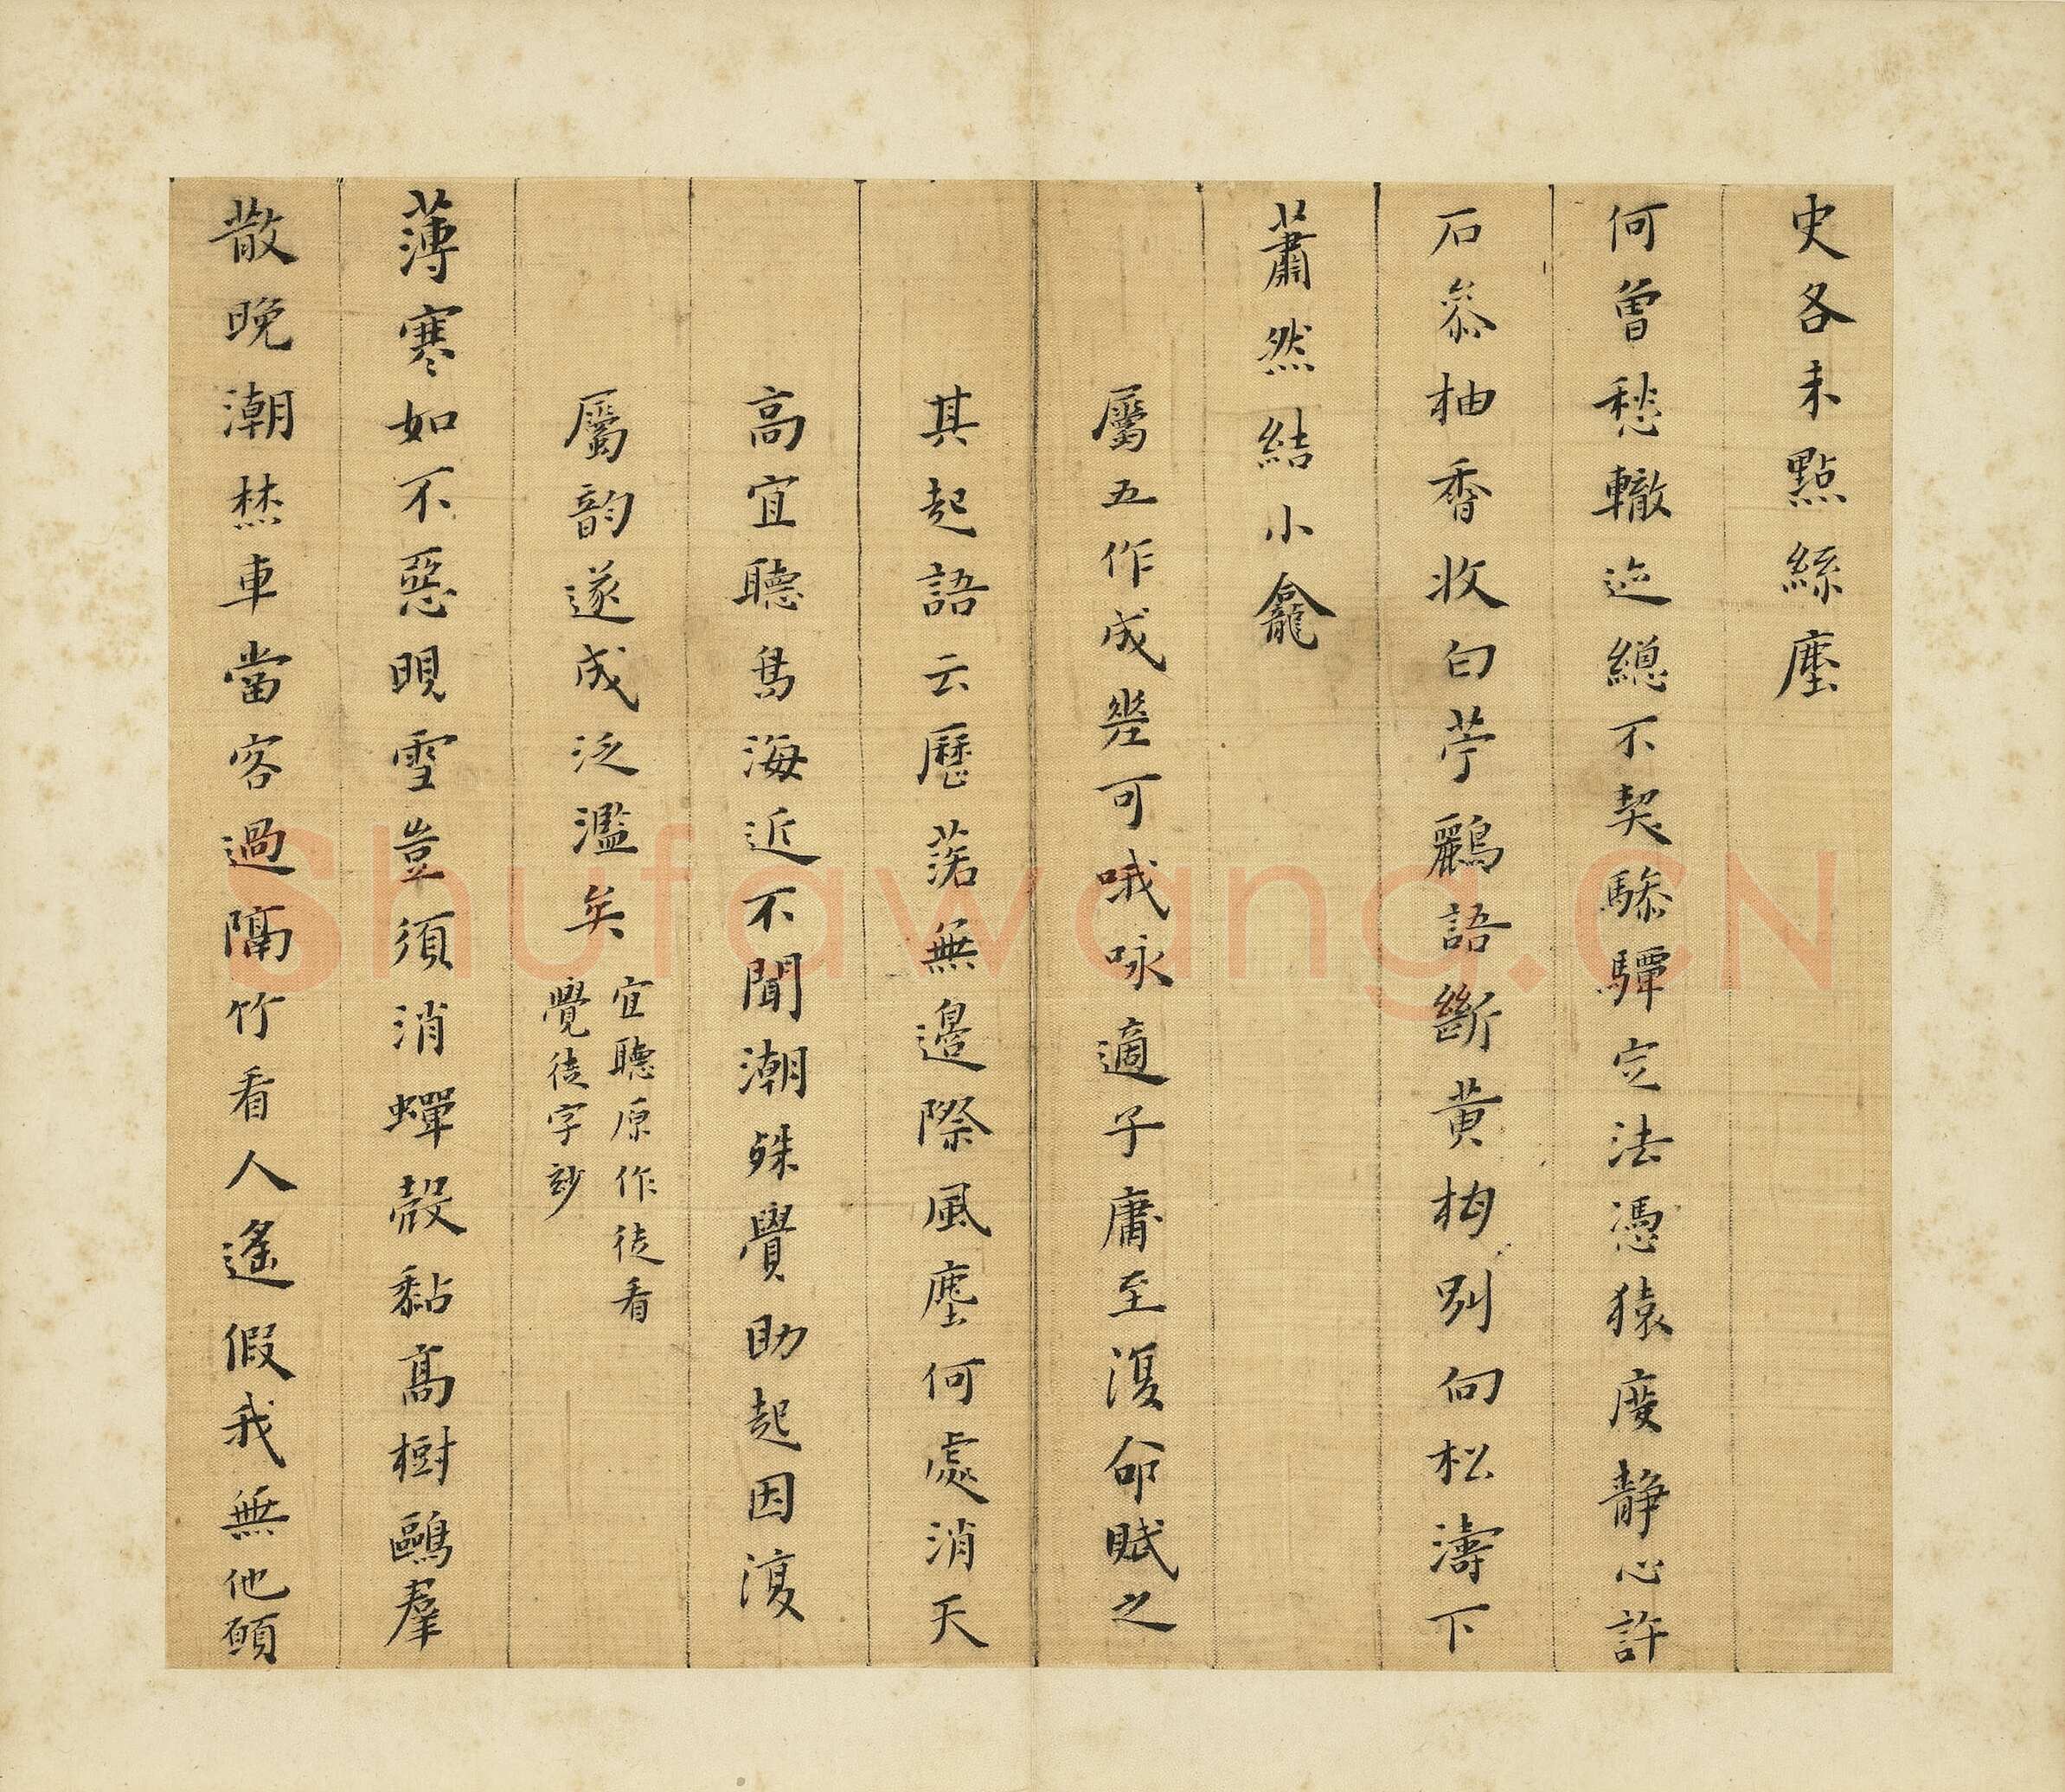 史各未點絲塵
何曾愁轍迹總不契驂驔定法憑猿度靜心許
石參柚香收白苧鸝語斷黃柑別向松濤下
蕭然結小龕
屬五作成堂可哦咏適子庸至復命賦之
其起語云歷落無邊際風塵何處消天
高宜聽鳥海近不聞潮殊覺助起因復
屬韵遂成泛濫矣
宜聽原作徒看
覺徒字玅
薄寒如不惡晛雪豈須消蟬殼黏高樹鷗羣
散晚潮焚車當客過隔竹看人遙假我無他願
Shufawang.CN